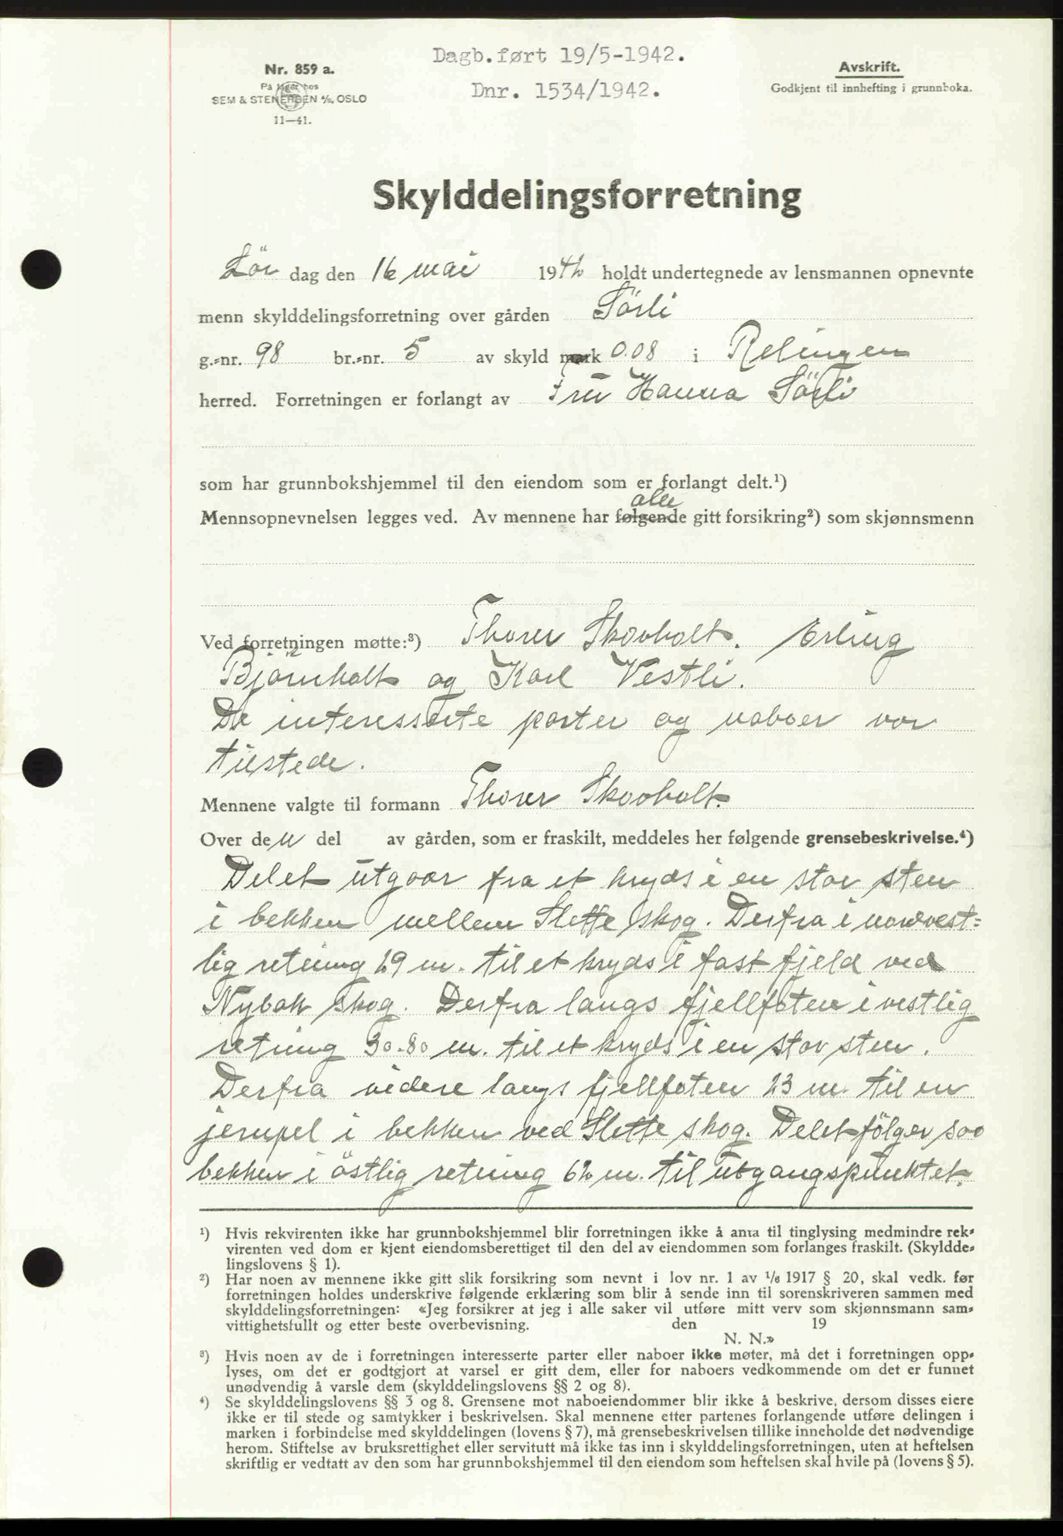 Dagb.ført 19/5-1942.
Dnr. 1534/1942.
Nr. 859 a.
På lager hos
SEM & STENERSEN A/S, OSLO
11—41.
Avskrift.
Godkjent til innhefting i grunnboka.
Skylddelingsforretning
Lör dag den 16 mai 1942 holdt undertegnede av lensmannen opnevnte
menn skylddelingsforretning over gården Sörli
g.-nr. 98 br.-nr. 5 av skyld mark 0.08 i Relingen
herred. Forretningen er forlangt av Fru Hanna Sörli
som har grunnbokshjemmel til den eiendom som er forlangt delt.¹)
alle
Mennsopnevnelsen legges ved. Av mennene har følgende gitt forsikring²) som skjønnsmenn
Ved forretningen møtte:³) Thorer Skovholt. Erling
Björnholt og Karl Vestli.
De interesserte parter og naboer var
tilstede.
Mennene valgte til formann Thorer Skovholt.
Over den del av gården, som er fraskilt, meddeles her følgende grensebeskrivelse.⁴)
Delet utgaar fra et kryds i en stor sten
i bekken mellem Slette skog. Derfra i nordvest-
lig retning 29 m. til et kryds i fast fjeld ved
Nybak skog. Derfra langs fjellfoten i vestlig
retning 30.80 m. til et kryds i en stor sten.
Derfra videre langs fjellfoten 23 m. til en
jernpel i bekken ved Slette skog. Delet fölger saa
bekken i östlig retning 62 m. til utgangspunktet.
¹) Hvis rekvirenten ikke har grunnbokshjemmel blir forretningen ikke å anta til tinglysing medmindre rek-
virenten ved dom er kjent eiendomsberettiget til den del av eiendommen som forlanges fraskilt. (Skyldde-
lingslovens § 1).
²) Har noen av mennene ikke gitt slik forsikring som nevnt i lov nr. 1 av 1/6 1917 § 20, skal vedk. før
forretningen holdes underskrive følgende erklæring som blir å sende inn til sorenskriveren sammen med
skylddelingsforretningen: «Jeg forsikrer at jeg i alle saker vil utføre mitt verv som skjønnsmann sam-
vittighetsfullt og etter beste overbevisning. den 19
N. N.»
³) Hvis noen av de i forretningen interesserte parter eller naboer ikke møter, må det i forretningen opp-
lyses, om det er godtgjort at varsel er gitt dem, eller for naboers vedkommende om det er funnet
unødvendig å varsle dem (skylddelingslovens §§ 2 og 8).
⁴) Se skylddelingslovens §§ 3 og 8. Grensene mot naboeiendommer blir ikke å beskrive, dersom disses eiere
ikke er til stede og samtykker i beskrivelsen. Skal mennene etter partenes forlangende utføre delingen i
marken i forbindelse med skylddelingen (lovens § 7), må grensebeskrivelsen tillike inneholde det nødvendige
herom. Stiftelse av bruksrettighet eller servitutt må ikke tas inn i skylddelingsforretningen, uten at heftelsen
skriftlig er vedtatt av den som har grunnbokshjemmel til den eiendom som heftelsen skal hvile på (lovens § 5).